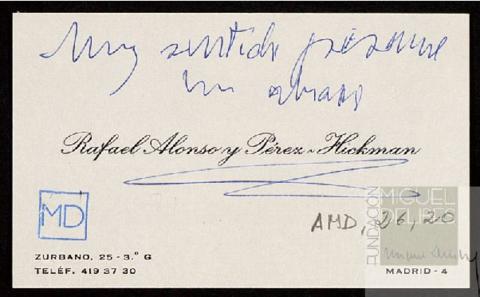 Muy sentido pésame
Un abrazo
Rafael Alonso y Pérez-Hickman
MD
AMD, 26, 20
ZURBANO, 25 - 3.º G
TELÉF. 419 37 30
MADRID - 4
FUNDACIÓN
MIGUEL
DELIBES